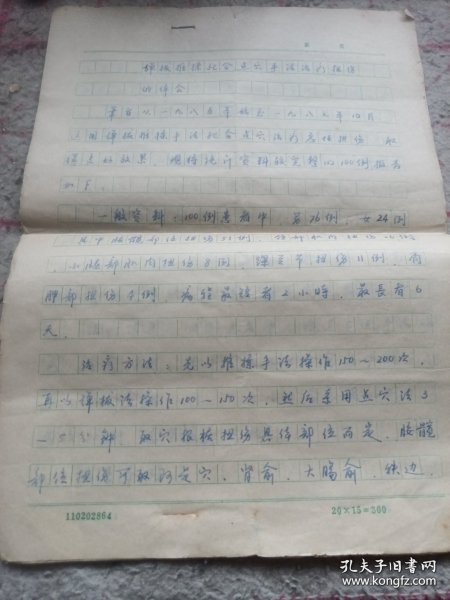 弹拨推揉配合点穴手法治疗扭伤
的体会
笔者从一九八五年始至一九八七年10月
运用弹拨推揉手法配合点穴治疗急性扭伤，取
得良好效果，现将统计资料较完整的100例报告
如下。
一般资料：100例患者中，男76例，女24例
其中腰髋部位扭伤
，小腿部肌肉扭伤8例，踝关节扭伤11例，肩
胛部扭伤4例，病程最短者2小时，最长者6
天。
治疗方法：先以推揉手法操作150～200次，
再以弹拨法操作100～150次，然后采用点穴法3
－5分钟 取穴根据扭伤具体部位而定，腰髋
部位扭伤可取阿是穴，肾俞，大肠俞，秩边，
110202864
20×15=300
孔夫子旧书网
www.kongfz.com